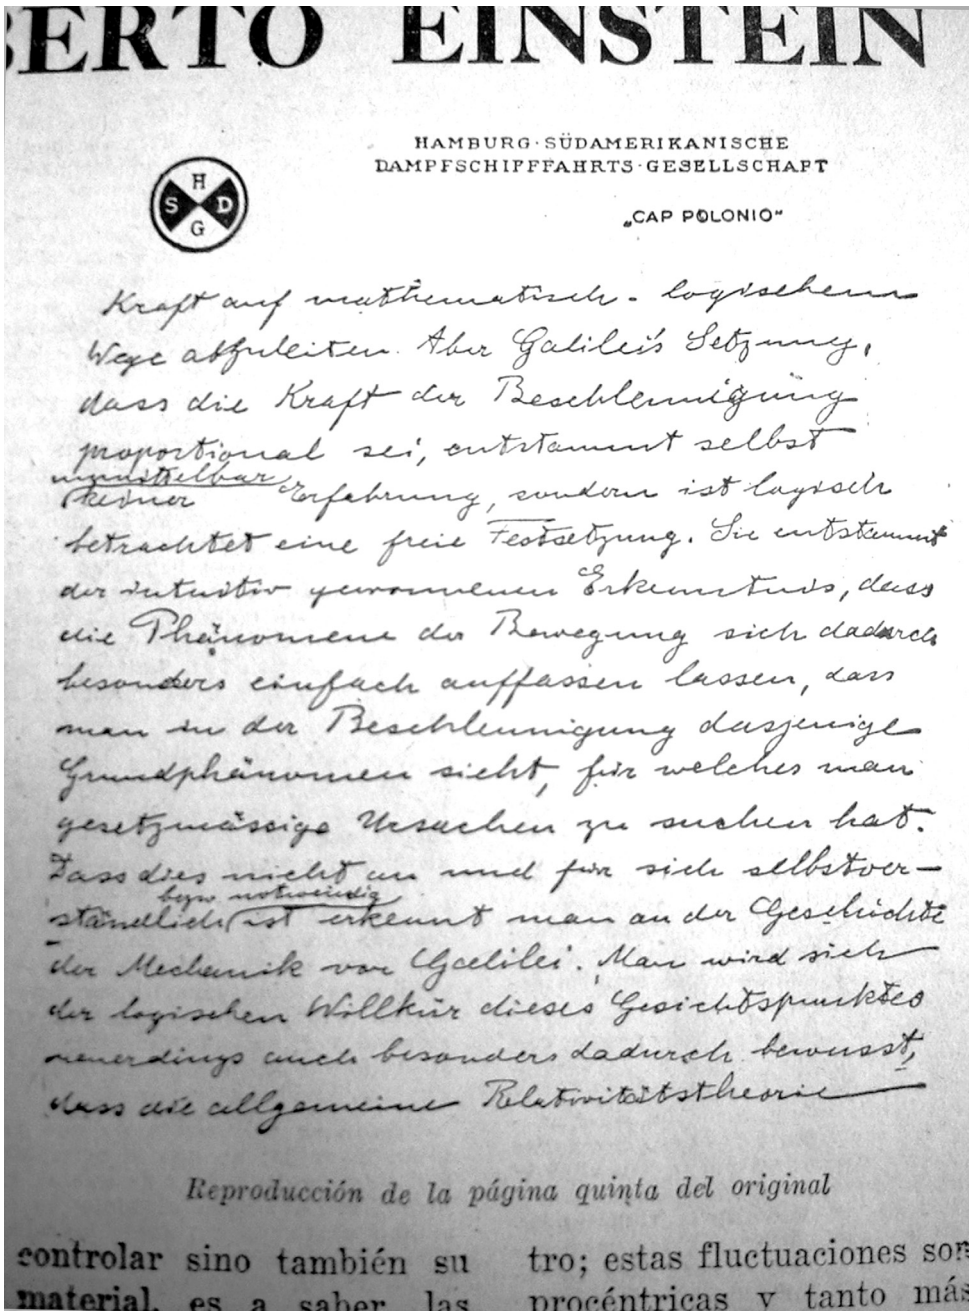 BERTO EINSTEIN
HAMBURG·SÜDAMERIKANISCHE
DAMPFSCHIFFFAHRTS·GESELLSCHAFT
H
S D
G
„CAP POLONIO"
Kraft auf mathematisch-logischem
Wege abzuleiten. Aber Galileis Setzung,
dass die Kraft der Beschleunigung
proportional sei, entstammt selbst
unmittelbar
keiner Erfahrung, sondern ist logisch
betrachtet eine freie Festsetzung. Sie entstammt
der intuitiv gewonnenen Erkenntnis, dass
die Phänomene der Bewegung sich dadurch
besonders einfach auffassen lassen, dass
man in der Beschleunigung dasjenige
Grundphänomen sieht, für welches man
gesetzmässige Ursachen zu suchen hat.
Dass dies nicht an und für sich selbstver-
bezw. notwendig
ständlich ist erkennt man an der Geschichte
der Mechanik vor Galilei. Man wird sich
der logischen Willkür dieses Gesichtspunktes
neuerdings auch besonders dadurch bewusst,
dass die allgemeine Relativitätstheorie
Reproducción de la página quinta del original
controlar sino también su
material, es a saber las
tro; estas fluctuaciones son
procéntricas y tanto más